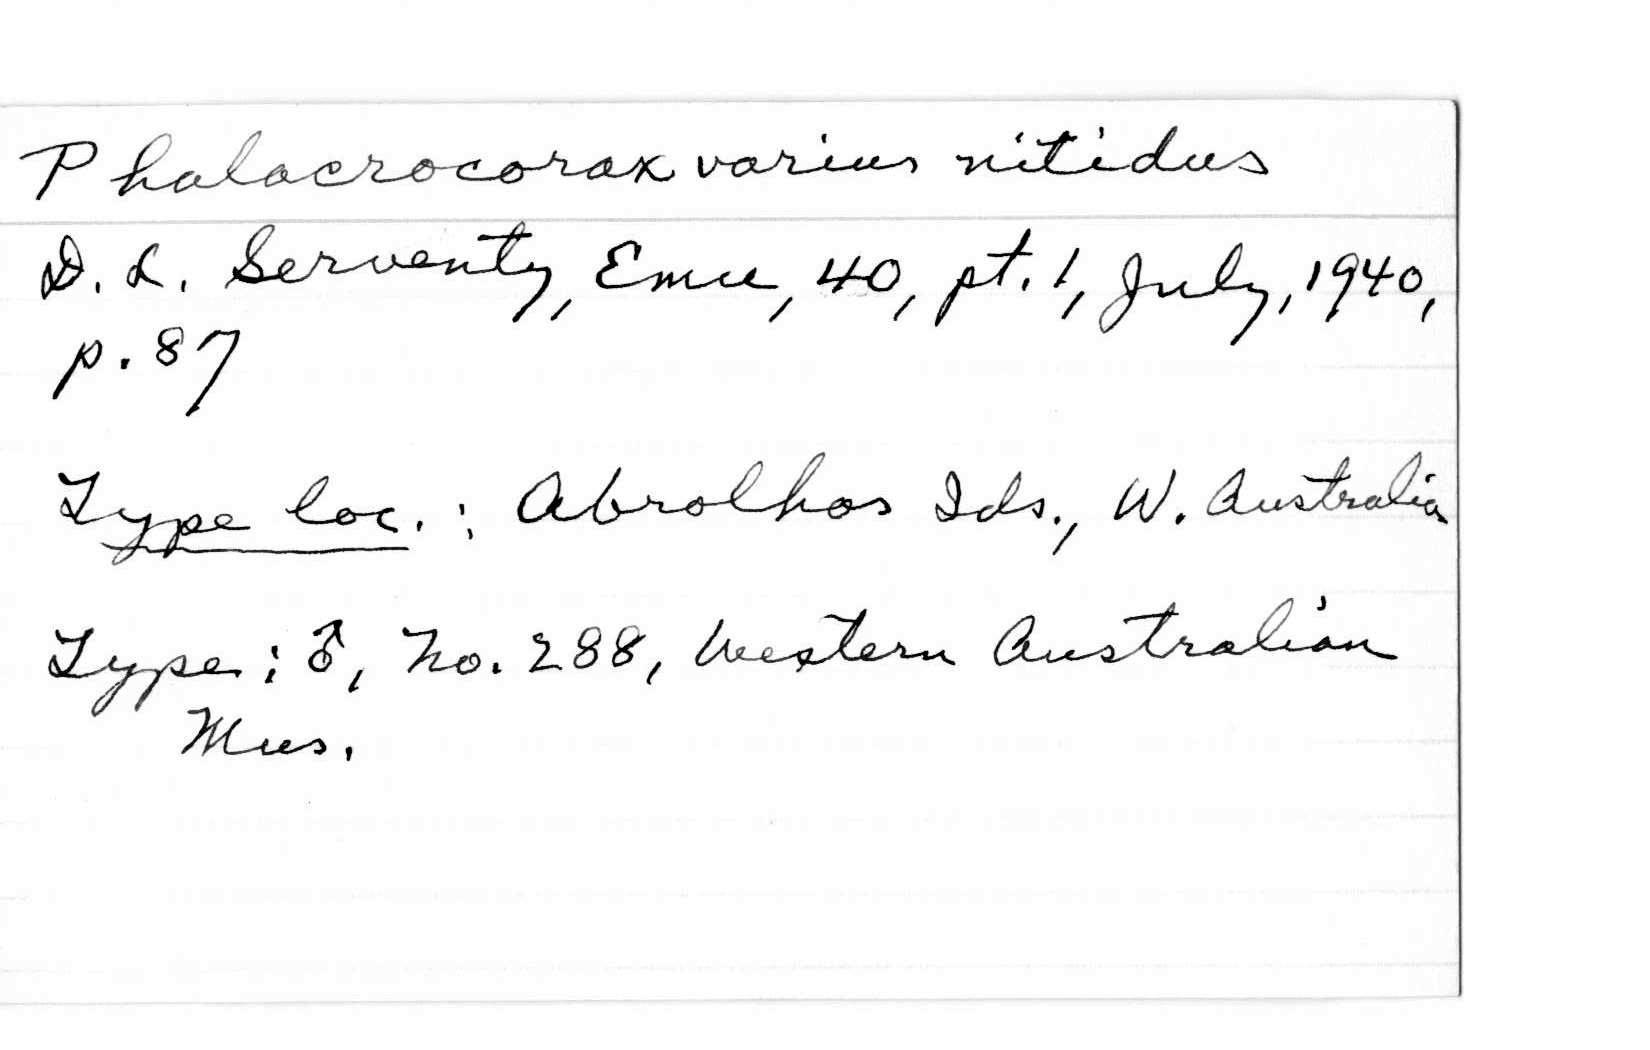 Phalacrocorax varius nitidus
D. L. Serventy, Emu, 40, pt. 1, July, 1940,
p. 87
Type loc.: Abrolhos Ids., W. Australia
Type: ♂, No. 288, Western Australian
Mus.